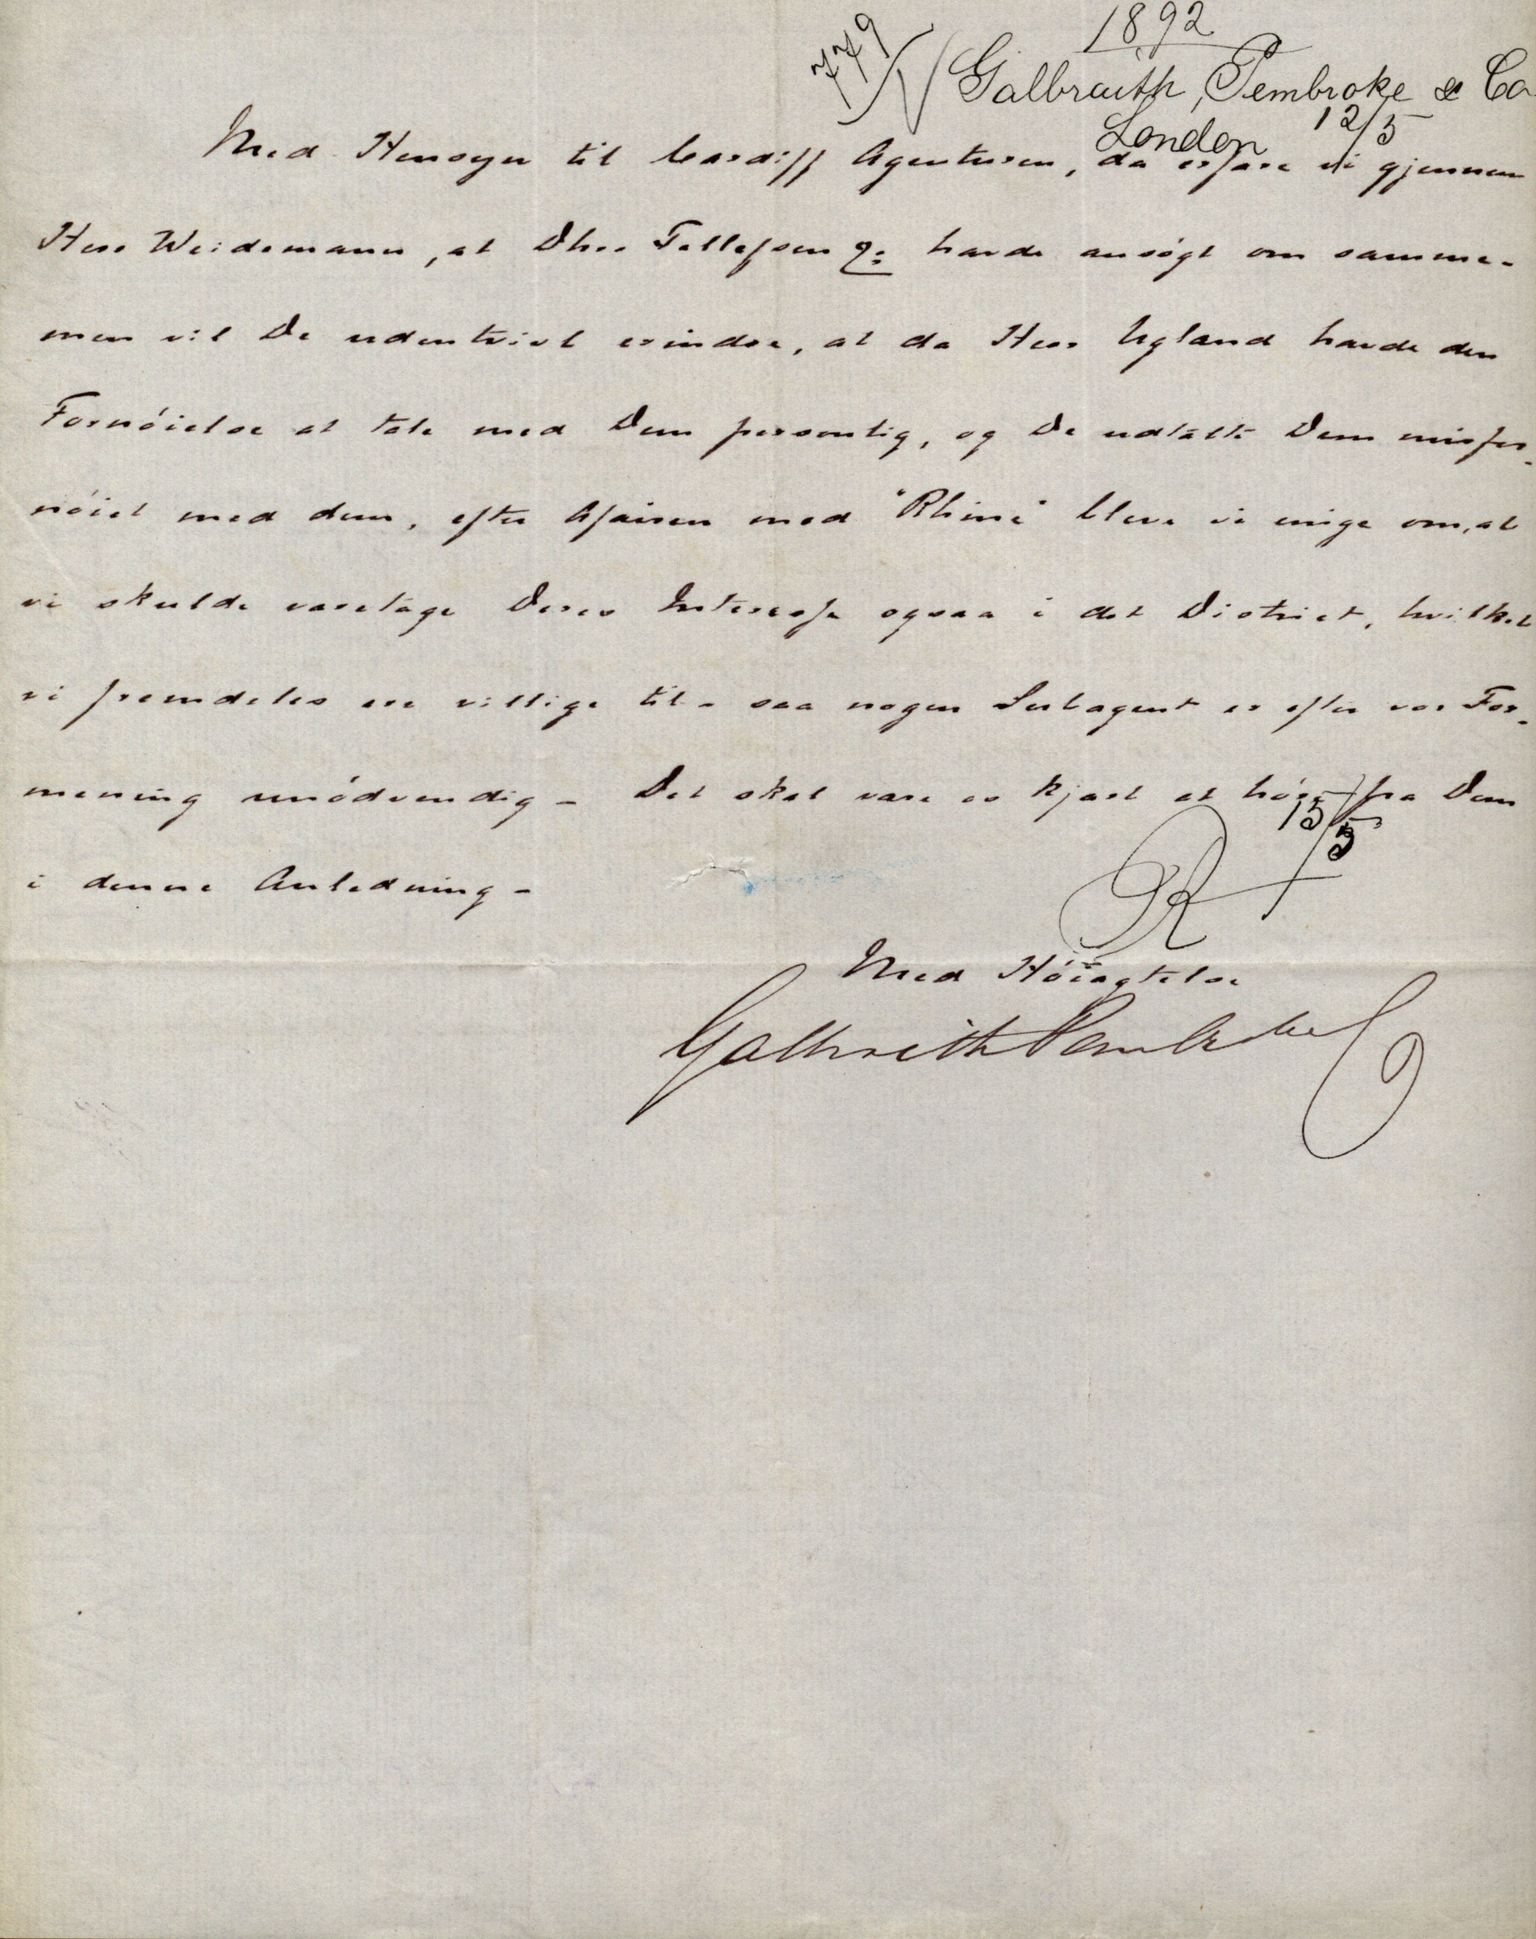 1892
779
Galbraith, Pembroke & Co
London 12/5
Med Hensyn til Cardiff Agenturen, da erfare vi gjennem
Herr Weidemann, at Dhrr Tellefsen & Co havde ansøgt om samme -
men vil De udentvivl erindre, at da Herr Ugland havde den
Fornøielse at tale med Dem personlig, og De udtalte Dem misfor-
nøiet med dem, efter Afairen med "Rhine" bleve vi enige om, at
vi skulde varetage Deres Interesse ogsaa i det District, hvilket
vi fremdeles ere villige til - saa nogen Subagent er efter vor For-
mening unødvendig - Det skal være os kjært at høre fra Dem
i denne Anledning -
R 15/5
Med Høiagtelse
Galbraith Pembroke Co